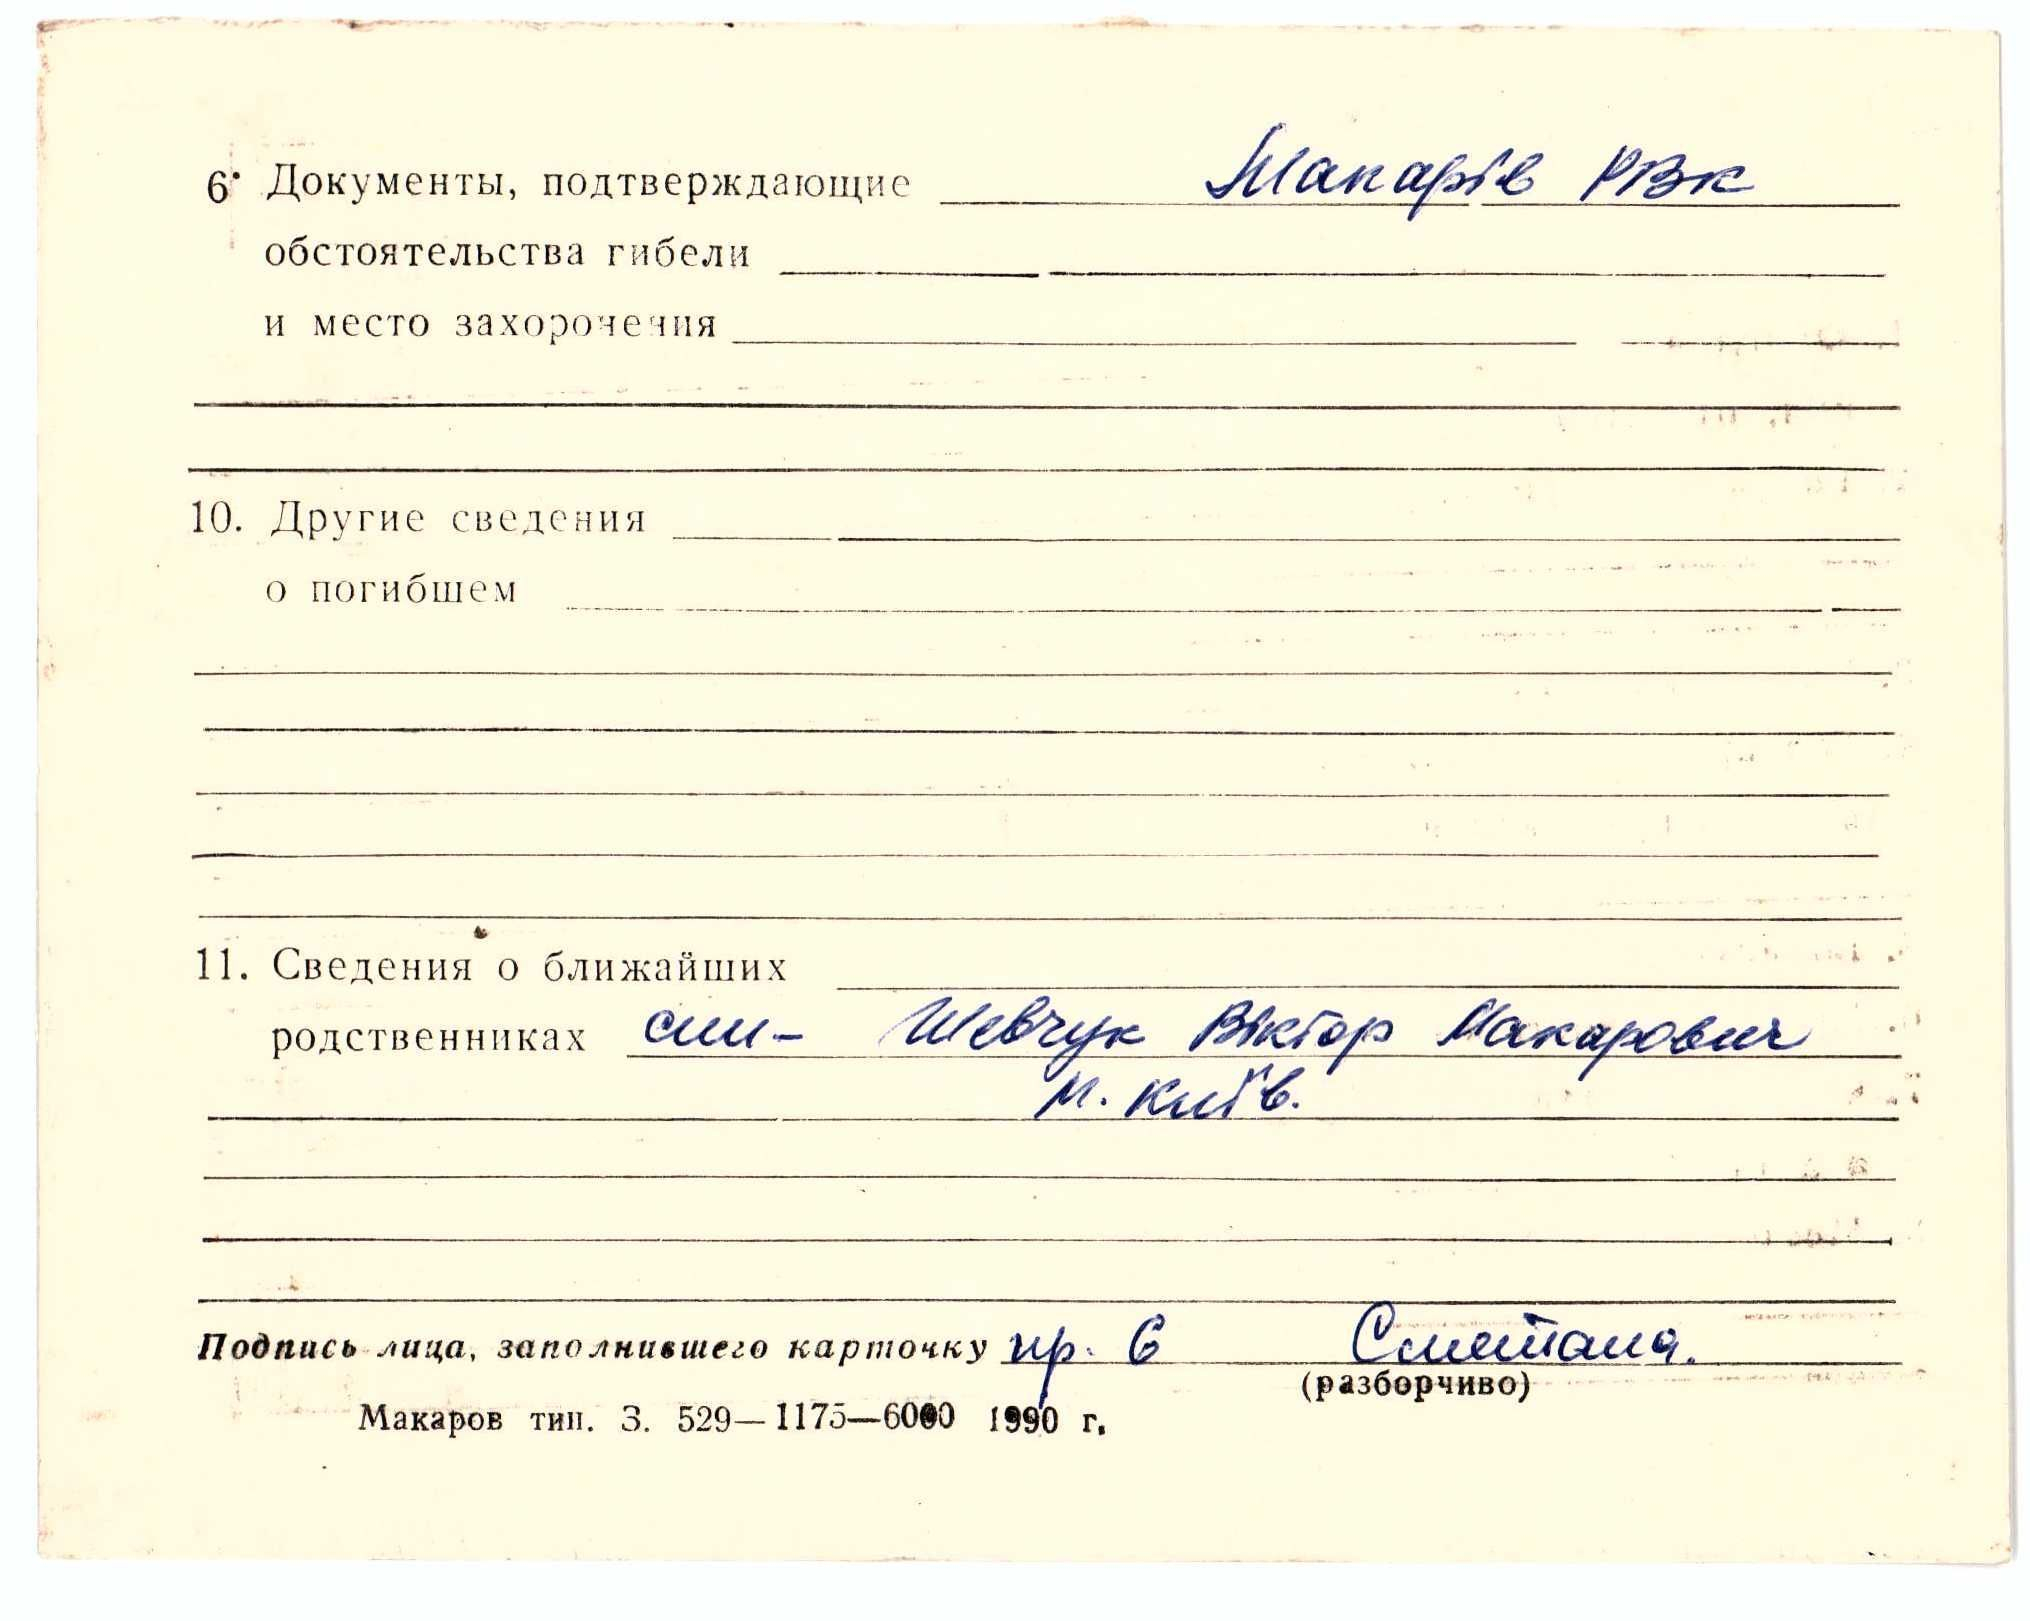 6. Документы, подтверждающие Макарів РВк
обстоятельства гибели
и место захоронения
10. Другие сведения
о погибшем
11. Сведения о ближайших
родственниках син – Шевчук Віктор Макарович
м. Київ.
Подпись лица, заполнившего карточку пр. 6 Сметана.
(разборчиво)
Макаров тип. З. 529—1175—6000 1990 г.